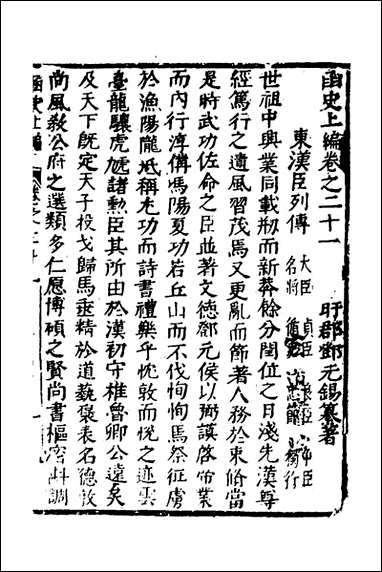 函史上編卷之二十一
盱郡鄧元錫纂著
東漢臣列傳 大臣 貞臣 良臣 爭臣
名將 循吏 忠節 獨行
世祖中興業同載刱而新莽餘分閏位之日淺先漢尊
經篤行之遺風習茂焉又更亂而節著人務於束脩當
是時武功佐命之臣並著文德鄧元侯以弼謨啓帝業
而內行淳備馮陽夏功若丘山而不伐恂恂焉祭征虜
於漁陽隴坻稱尤功而詩書禮樂乎悅敦而悅之迹雲
臺龍驤虎虓諸勲臣其所由於漢初守椎魯卿公遠矣
及天下既定天子投戈歸馬垂精於道藝褒表名德敦
尚風敎公府之選類多仁愿博碩之賢尚書樞密斟調